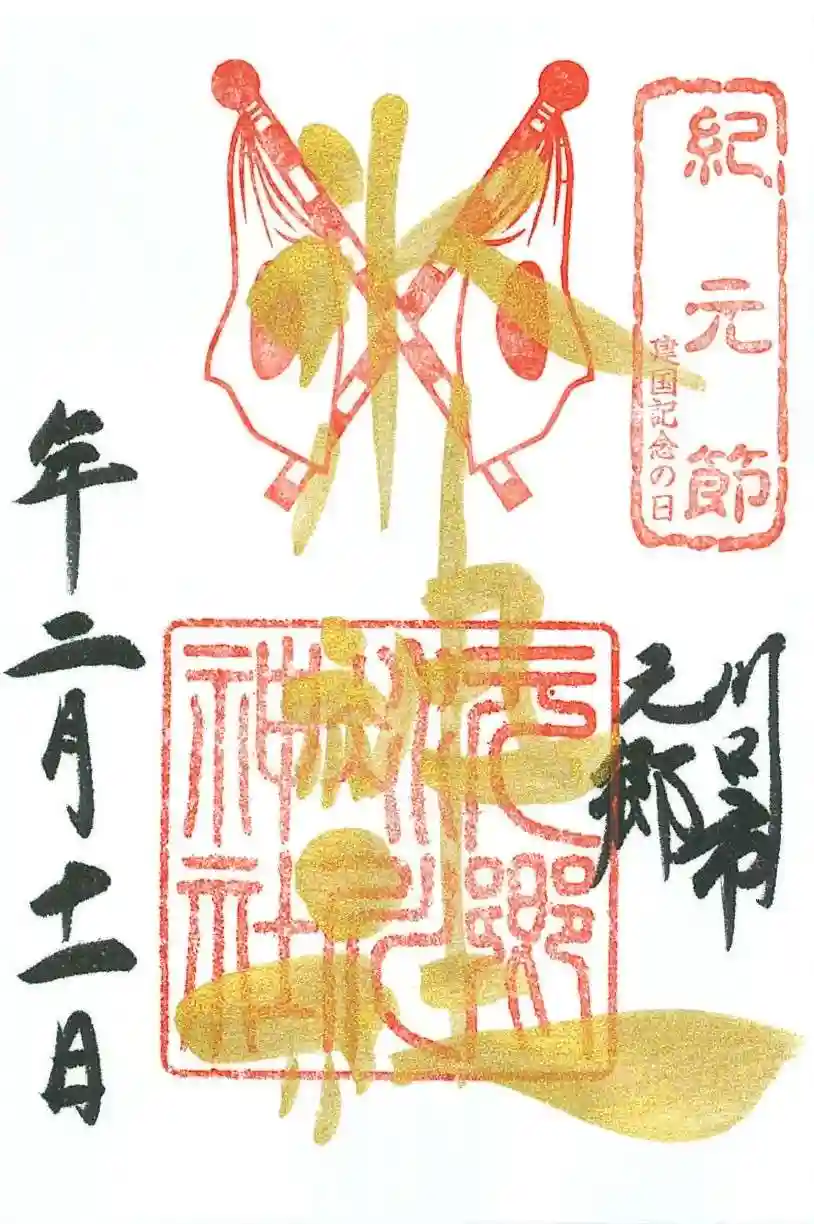 紀元節
建国記念の日
川口市
元郷
元郷
氷川
神社
年二月十一日